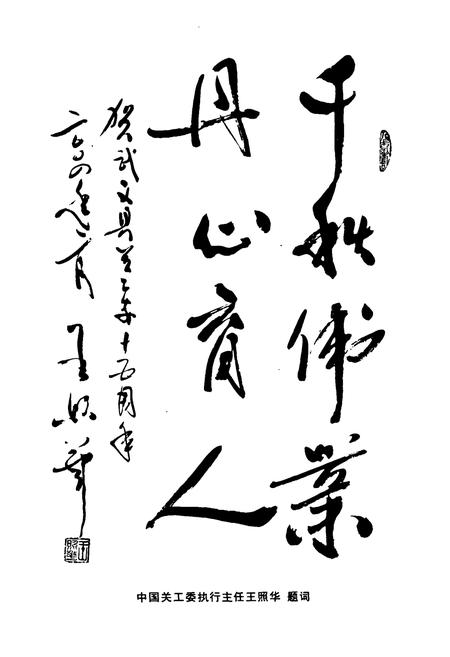 千秋伟业
丹心育人
贺武义县关工委十五周年
二〇〇四年二月 王照华
中国关工委执行主任王照华 题词